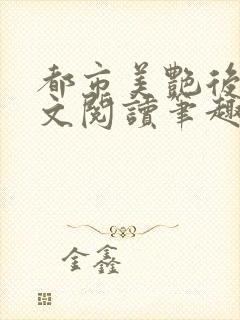 都市美艷後
文閱讀筆趣
金鑫